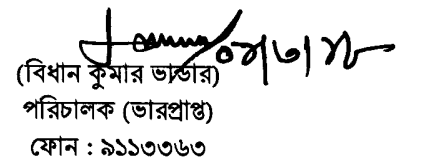 (বিধান কুমার ভান্ডার)
পরিচালক (ভারপ্রাপ্ত)
ফোন : ৯১১৩৩৬৩